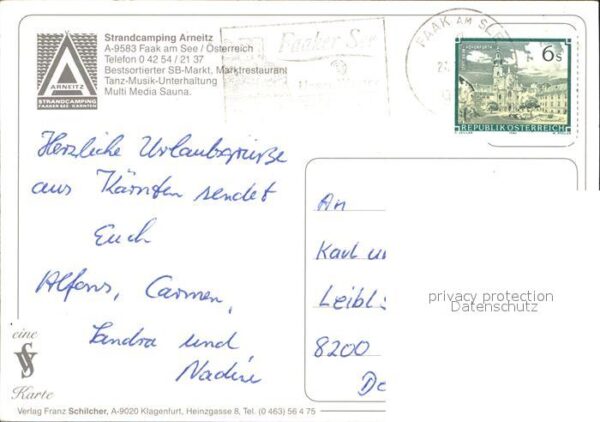 Strandcamping Arneitz
A-9583 Faak am See / Österreich
Telefon 0 42 54 / 21 37
Bestsortierter SB-Markt, Marktrestaurant
Tanz-Musik-Unterhaltung
Multi Media Sauna.
ARNEITZ
STRANDCAMPING
FAAKER SEE KÄRNTEN
Faaker See
FAAK AM
6s
REPUBLIK ÖSTERREICH
Herzliche Urlaubsgrüße
aus Kärnten sendet
Euch
Alfons, Carmen,
Sandra und
Nadine
An
Karl
Leibl
8200
privacy protection
Datenschutz
eine
Karte
Verlag Franz Schilcher, A-9020 Klagenfurt, Heinzgasse 8, Tel. (0 463) 56 4 75